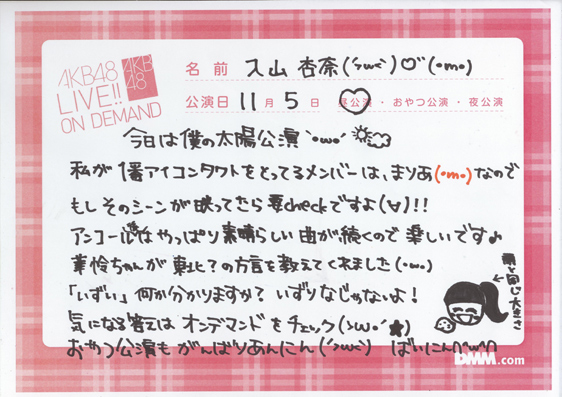 AKB48
LIVE!!
ON DEMAND
AKB
48
名前 入山 杏奈(´›ω‹｀)♡(・m・)
公演日 11月5日 昼公演・おやつ公演・夜公演
今日は僕の太陽公演`・ωo´
私が1番アイコンタクトをとってるメンバーは、まりあ(・m・)なので
もしそのシーンが映ってたら要checkですよ(∀)!!
アンコール後はやっぱり素晴らしい曲が続くので楽しいです♪
業怜ちゃんが東北?の方言を教えてくれました(・ω・)
「いずい」何か分かりますか？いずりなじゃないよ！
気になる答えはオンデマンドをチェック(›ω・´★)
おやつ公演もがんばりあんにん(´›ω‹｀) ばいにん∩^ω^∩
顔と同じ大きさ
DMM.com